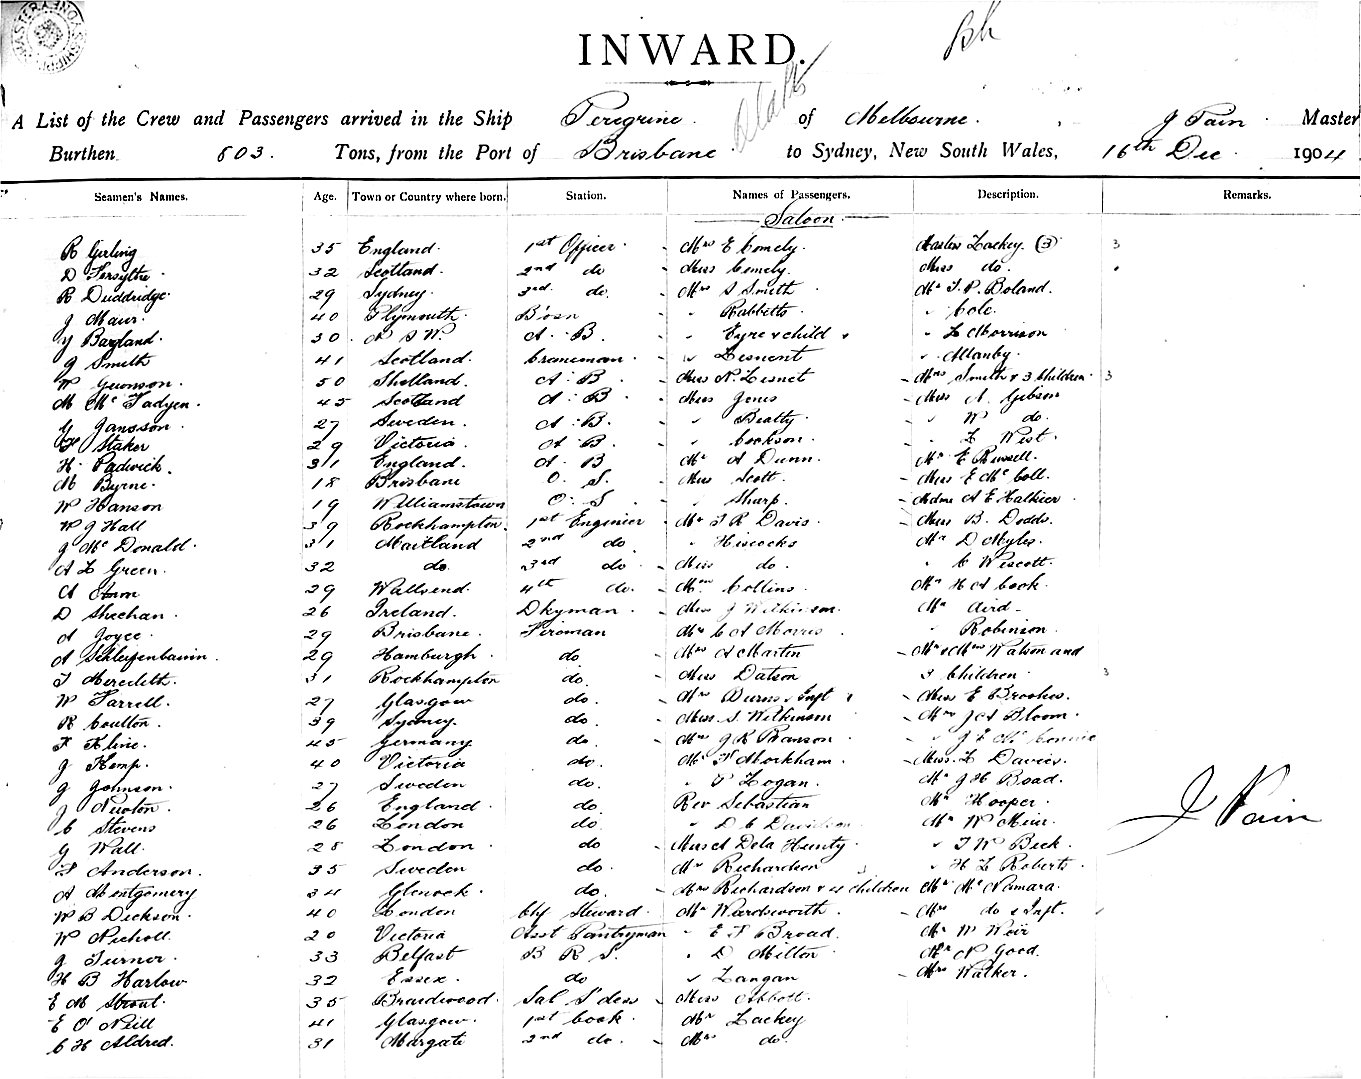 INWARD.
A List of the Crew and Passengers arrived in the Ship Peregrine of Melbourne. J Pain Master
Burthen 803. Tons, from the Port of Brisbane to Sydney, New South Wales, 16th Dec 1904
Seamen's Names. Age. Town or Country where born. Station. Names of Passengers. Description. Remarks.
Saloon
R Girling 35 England 1st Officer Mrs E Comely Master Lackey (3) 3
D Forsythe 32 Scotland 2nd do Miss Comely Miss do
R Duddridge 29 Sydney 3rd do Mrs S Smith Mr T. P. Boland
J 40 Plymouth B'osn " Rabbitts " Cole
30 N S W. A. B. " Eyre & child " L Morrison
G Smith 41 Scotland Craneman " " Allanby
W 50 A. B Miss N. Mrs Smith & 3 Children 3
M Mc Fadyen 45 Scotland A. B Miss Jones Miss A. Gibson
G Jansson 27 Sweden A. B. " Beatty " W do.
F Staker 29 Victoria A. B. " Cookson " L West
H. Padwick 31 England A. B Mr A Dunn Mr E Russell
M Byrne 18 Brisbane O. S. Miss Scott Miss E McColl
W Hanson 19 Williamstown O. S " Sharp Mdme A E
W J Hall 39 Rockhampton 1st Engineer Mr T R Davis Miss B. Dodds
J Mc Donald 31 Maitland 2nd do " Hiscocks Mr D Myles
A L Green 32 do 3rd do Miss do. " C Wescott
A 29 Wallsend 4th do. Mrs Collins Mr H A Cook
D Sheehan 26 Ireland Dkyman Miss J Wilkinson Mr Aird
A Joyce 29 Brisbane Fireman Mr C A Morris " Robinson
A Schleifenbaum 29 Hamburgh do Mrs A Martin Mr & Mrs Watson and
T Meredith 31 Rockhampton do. Miss Datson 3 Children 3
W Farrell 27 Glasgow do. Mrs Burns & Inft Miss E Brookes
R Coulton 39 Sydney do. Miss S. Wilkinson Mrs J A Bloom
F Kline 45 Germany do. Mrs J R Branson " J
G Kemp 40 Victoria do. Mr F Morkham Miss L Davies
G Johnson 27 Sweden do. " P Logan Mr J H Boad
J Newton 26 England do Rev Sebastian Mr Hooper
C Stevens 26 London do. " D C Davidson Mr W Muir
G Wall 28 London do Miss A Dela Hunty " T W Beck
F Anderson 35 Sweden do. Mr Richardson " H L Roberts
A Montgomery 34 do. Mrs Richardson & 4 children Mr Mc Namara
W B Dickson 40 London Chf Steward Mr Wardsworth Mrs do & Inft.
W Nicholl 20 Victoria Asst Pantryman " E T Broad Mr W Weir
G Turner 33 Belfast B R S. " D Milton Mr N Good
H B Harlow 32 Essex do " Langan Mrs Walker
E M Strout 35 Braidwood Sal S'dess Miss Abbott
E O'Neill 41 Glasgow 1st Cook Mr Lackey
C H Aldred 31 Margate 2nd do. Mrs do.
J Pain